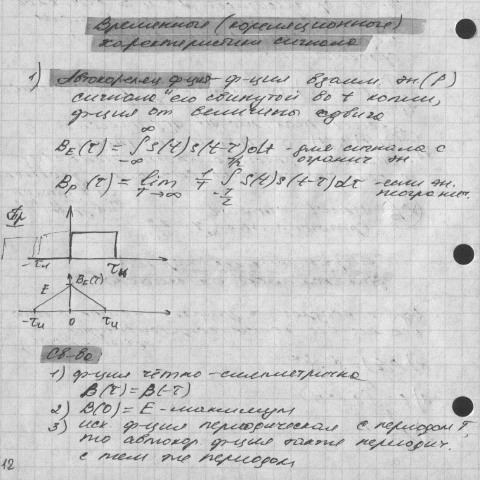 Временные (кореляционные)
характеристики сигнала
1) Автокореляц ф-ция - ф-ция взаим. эн(P)
сигнала и его сдвинутой во t копии,
ф-ция от величины сдвига
B_E(τ) = ∫_{-∞}^{∞} s(t) s(t-τ) dt - для сигнала с
огранич эн.
B_p(τ) = lim_{T→∞} 1/T ∫_{-T/2}^{T/2} s(t) s(t-τ) dτ - если эн.
неогранич.
Пр
-τи τи
E B_E(τ)
-τи 0 τи
Св-ва
1) ф-ция чётно-симметрична
B(τ) = B(-τ)
2) B(0) = E - максимум
3) исх ф-ция периодическая с периодом T,
то автокор. ф-ция также периодич.
с тем же периодом
12